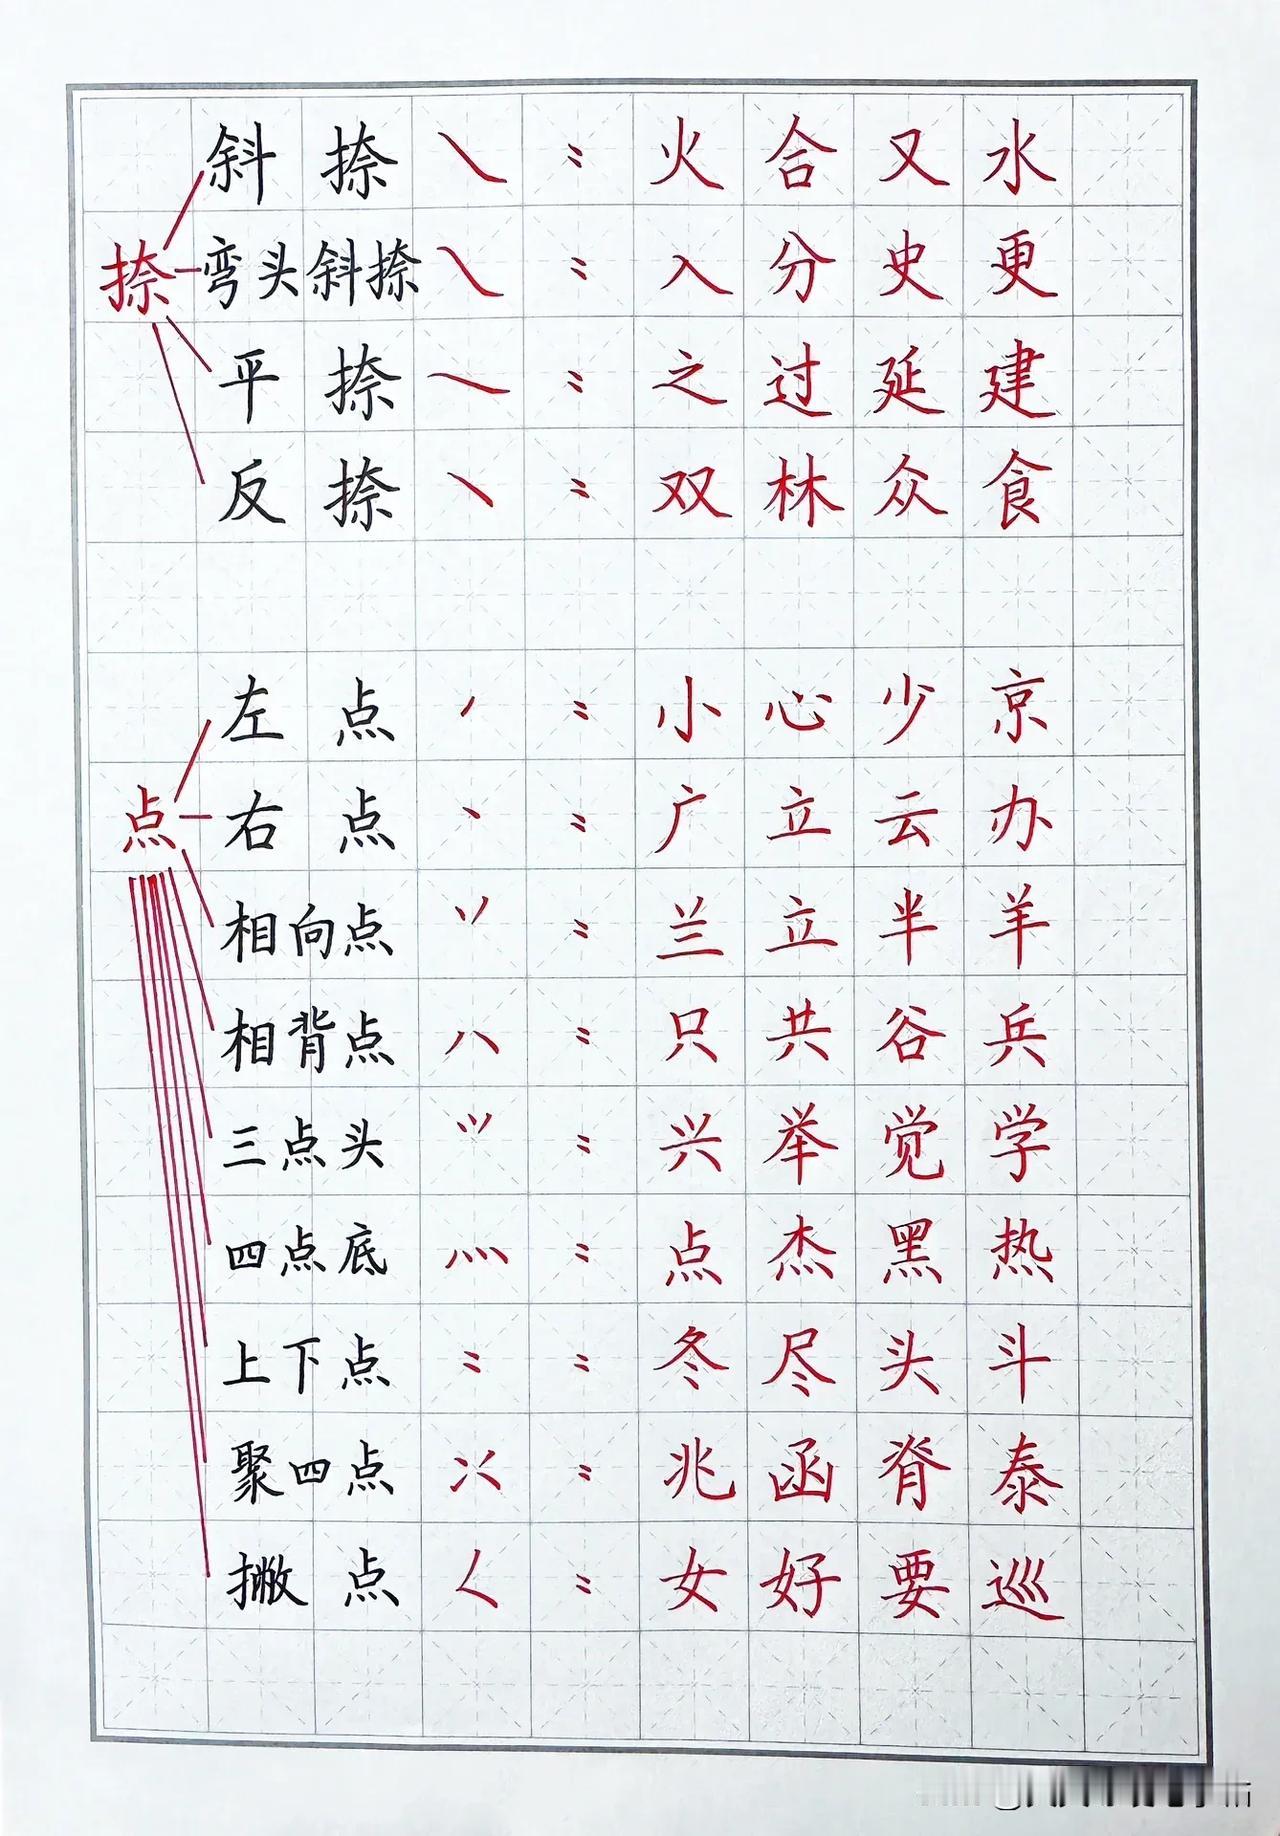 斜捺 ㇏ : 火 合 又 水
捺 弯头斜捺 ㇏ : 入 分 史 更
平捺 ㇏ : 之 过 延 建
反捺 ㇔ : 双 林 众 食
左点 ㇓ : 小 心 少 京
点 右点 丶 : 广 立 云 办
相向点 丷 : 兰 立 半 羊
相背点 八 : 只 共 谷 兵
三点头 ⺍ : 兴 举 觉 学
四点底 灬 : 点 杰 黑 热
上下点 : : 冬 尽 头 斗
聚四点 : 兆 函 脊 泰
撇点 ㇛ : 女 好 要 巡